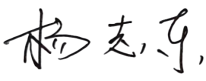 杨志东